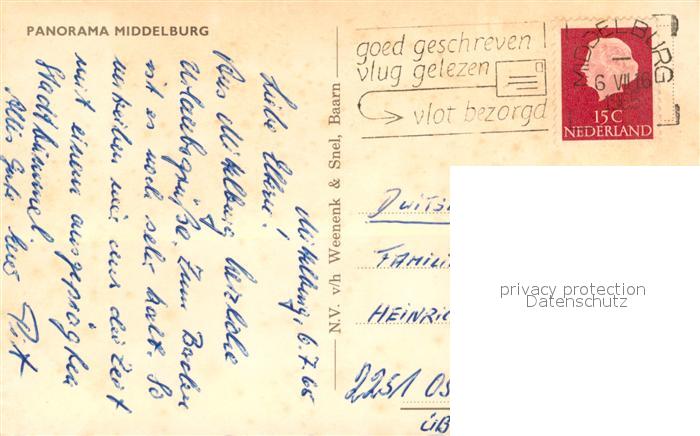 PANORAMA MIDDELBURG
Middelburg, 6.7.65
Liebe Eltern!
Aus Middelburg herzliche
Urlaubsgrüße. Zum Baden
ist es noch sehr kalt. So
vertreiben wir uns die Zeit
mit einem ausgeprägten
Stadtbummel
Alles Gute Euer
N.V. v/h Weenenk & Snel, Baarn
goed geschreven
vlug gelezen
vlot bezorgd
MIDDELBURG
6 VII 16
15C
NEDERLAND
DUITS
FAMILI
HEINRIC
2251 OS
ÜB
privacy protection
Datenschutz